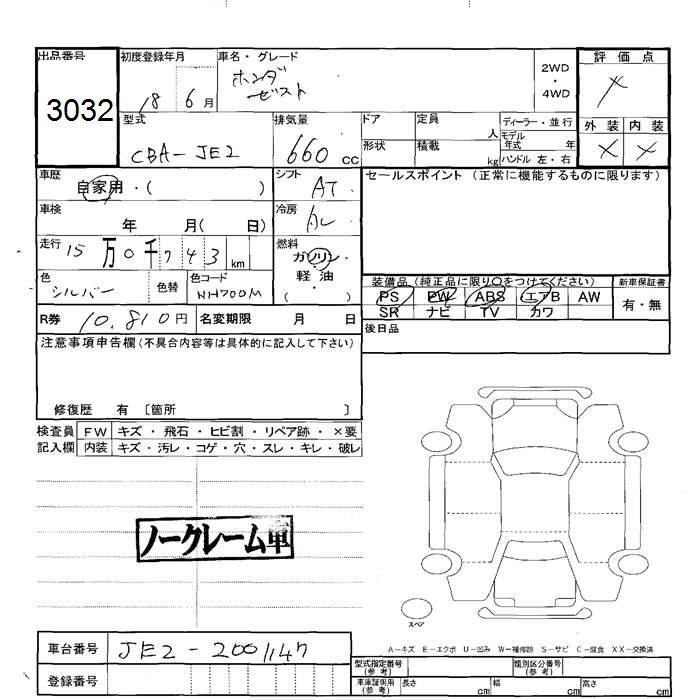 出品番号 初度登録年月 車名・グレード 評価点
3032 18 6月 ホンダ ゼスト 2WD・4WD
型式 排気量 ドア 定員 人 ディーラー・並行 外装 内装
CBA-JE2 660cc 形状 積載 kg モデル年式 年 ハンドル 左・右 × ×
車歴 自家用・( ) シフト AT セールスポイント (正常に機能するものに限ります)
車検 年 月( 日) 冷房
走行 15万0千743km 燃料 ガソリン・軽油・( )
色 シルバー 色替 色コード NH700M
装備品 (純正品に限り○をつけてください) 新車保証書
PS PW ABS エアB AW 有・無
SR ナビ TV カワ
R券 10,810円 名変期限 月 日
後日品
注意事項申告欄(不具合内容等は具体的に記入して下さい)
修復歴 有 〔箇所 〕
検査員 FW キズ・飛石・ヒビ割・リペア跡・×要
記入欄 内装 キズ・汚レ・コゲ・穴・スレ・キレ・破レ
ノークレーム車
スペア
A-キズ E-エクボ U-凹み W-補修跡 S-サビ C-腐食 XX-交換済
車台番号 JE2-2001147
型式指定番号(参考) 類別区分番号(参考)
登録番号
車庫証明用(参考) 長さ cm 幅 cm 高さ cm